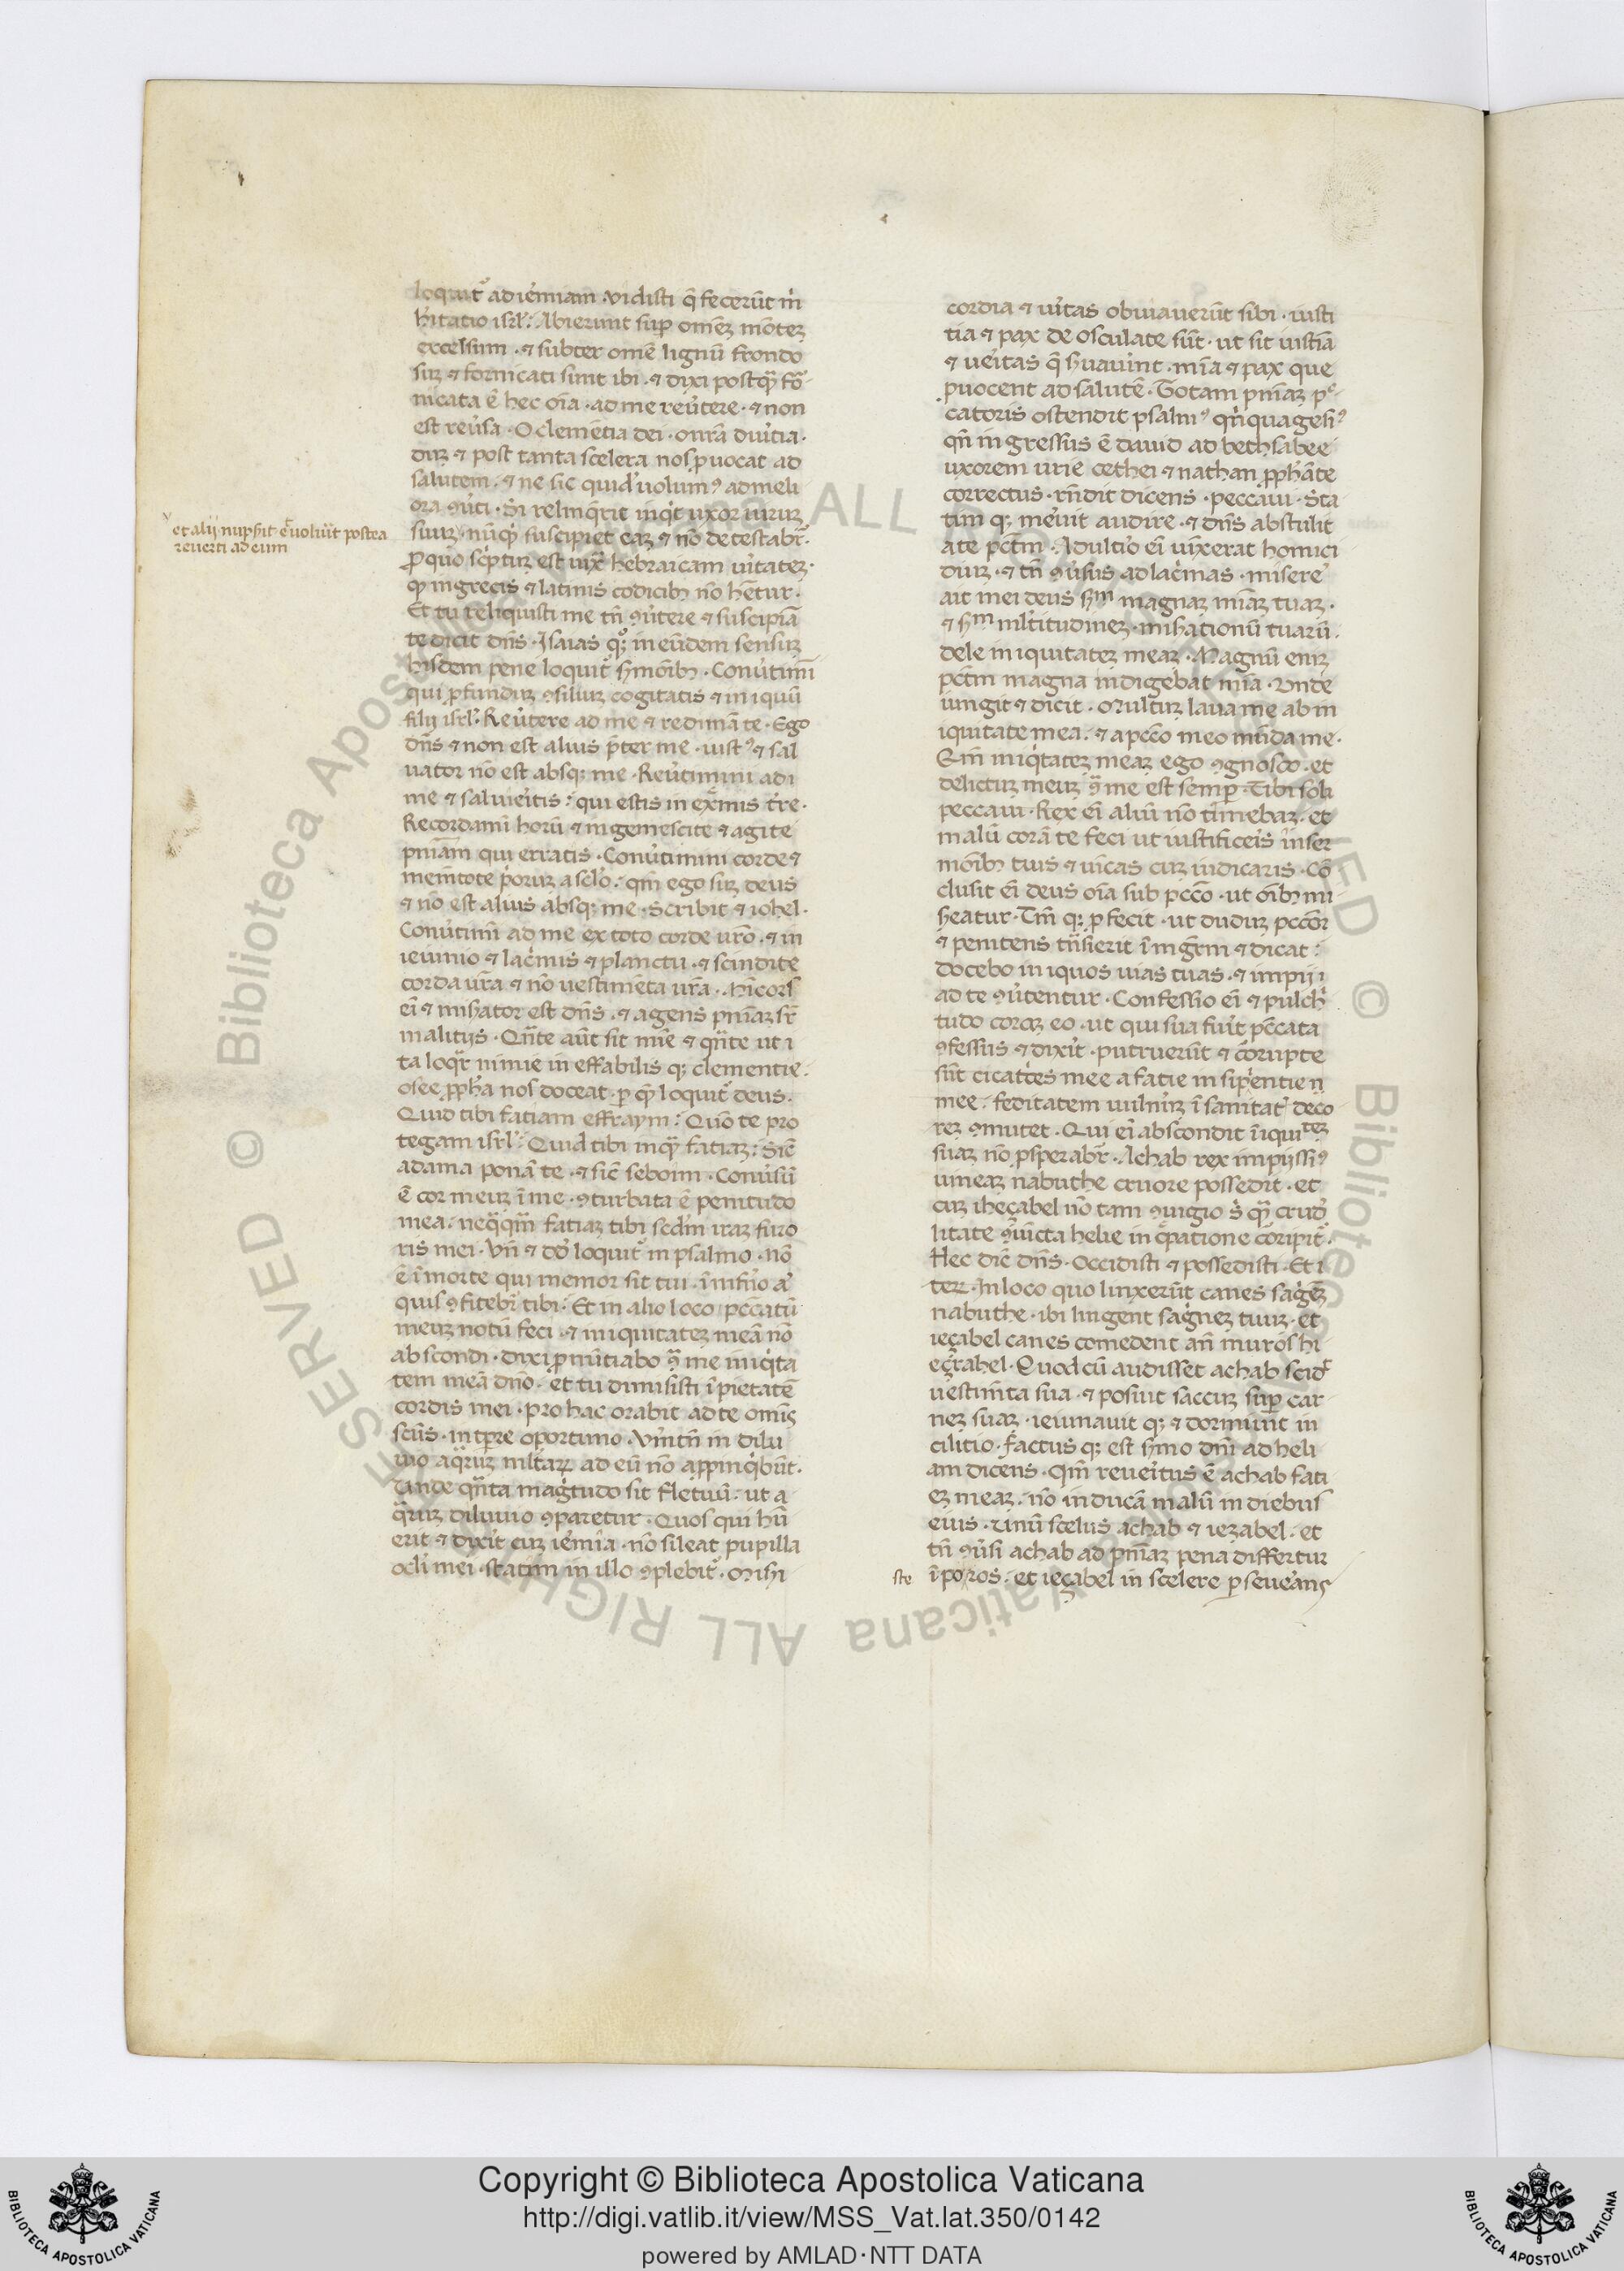 loquit᷒ ad ieremiam · vidisti q̄ fecerūt m̄
h̓itatio isrl̓ : Abierunt sup̱ omēꝫ mōteꝫ
excelsum · ⁊ subter omē lignū frondo
suꝫ ⁊ fornicati sunt ibi · ⁊ dixi postq̄ꝫ fō
nicata ē hec oīa · ad me reu̓tere · ⁊ non
est reu̓sa · O clemētia dei · o nr̄a duritia ·
duꝫ ⁊ post tanta scelera nos ꝓuocat ad
salutem · ⁊ ne sic quid̓ uolumꝰ ad meli
ora ꝯu̓ti · Si relinq̄rit inq̇t uxor uiruꝫ
suuꝫ
⁊ nūq̇d suscipiet eaꝫ ⁊ nō detestabr̄ ·
et alij nupserit · ⁊ uoluit postea
reuerti ad eum
ꝓ quo scp̄tuꝫ est iuxͣ hebraicam ueritateꝫ ·
qd̓ in grecis ⁊ latinis codicibꝫ nō hētur ·
Et tu reliquisti me tn̄ ꝯu̓tere ⁊ suscipiā
te dicit dn̄s · Isaias qͦꝫ in eūdem sensuꝫ
hisdem pene loquit᷒ sermōibꝫ · Conu̓timī
qui ꝓfunduꝫ ꝯsiliuꝫ cogitatis ⁊ iniquū
filij isrl̓ · Reu̓tere ad me ⁊ redimā te · Ego
dn̄s ⁊ non est alius p̄ter me · iustꝰ ⁊ sal
uator nō est absqꝫ me · Reu̓timini ad
me ⁊ salui eritis : qui estis in ext̄mis tr̄e ·
Recordamī horū ⁊ ingemescite ⁊ agite
pnīam qui erratis · Conu̓timini corde ⁊
memētote p̓oruꝫ a sclo : qm̄ ego suꝫ deus
⁊ nō est alius absqꝫ me · Scribit ⁊ iohel ·
Conu̓timī ad me ex toto corde ur̄o · ⁊ in
ieiunio ⁊ lac̓mis ⁊ planctu · ⁊ scindite
corda ur̄a ⁊ nō uestimēta ur̄a · mīcors
eī ⁊ miserator est dn̄s · ⁊ agens pnīaꝫ sr̄
malitijs · Qn̄te aūt sit mīe ⁊ qn̄te ut i
ta loqͣr nimie ineffabilisqꝫ clementie ·
osee ꝓph̓a nos doceat · ꝑ quē loquit᷒ deus ·
Quid tibi fatiam effraym : Quō te pro
tegam isrl̓ : Quid tibi inq̄ꝫ fatiaꝫ : Sic̄
adama ponā te · ⁊ sic̄ seboim · Conu̓suꝫ
ē cor meuꝫ ī me · ꝯturbata ē penitudo
mea · neqͣqͣꝫ fatiaꝫ tibi sed̓m iraꝫ furo
ris mei · Vn̄ ⁊ dd̓ loquit᷒ in psalmo · nō
ē ī morte qui memor sit tui · ī inferno aūt
quis ꝯfitebr̄ tibi : Et in alio loco pccatū
meuꝫ notū feci · ⁊ iniquitateꝫ meā nō
abscondi · dixi ꝓnūtiabo ꝯͣ me iniq̇ta
tem meā dn̄o · et tu dimisisti ī pietatē
cordis mei · pro hac orabit ad te omnis
scūs · in tp̄re oportuno · Vm̄tn̄ in dilu
uio aqͣruꝫ mltaꝝ ad eū nō apꝓpinq̇būt ·
Unde qn̄ta magnitudo sit fletuū · ut a
qͣruꝫ diluuio ꝯparetur · Quos qui hūe
erit ⁊ dixit cuꝫ ieremia · nō sileat pupilla
ocli mei · statim in illo ꝯplebit᷒ · Miseri
cordia ⁊ ueritas obuiauerūt sibi · iusti
tia ⁊ pax de osculate sūt · ut sit iustiā
⁊ ueritas q̄ seruauerint · mīa ⁊ pax que
ꝓuocent ad salutē · Totam pnīaꝫ pec
catoris ostendit psalmꝰ qn̄quagesīꝰ
qn̄ ingressus ē dauid ad bethsabee
uxorem urie cethei ⁊ nathan ꝓph̓āte
correctus · rn̄dit dicens · peccaui · Sta
timqꝫ meruit audire · ⁊ dn̄s abstulit
a te pctm̄ · Adultio eī iūxerat homici
diuꝫ · ⁊ tn̄ ꝯuersus ad lac̓mas · miserere
ait mei deus sm magnaꝫ mīaꝫ tuaꝫ ·
⁊ sm mltitudineꝫ · miserationū tuarū ·
dele iniquitateꝫ meaꝫ · Magnū eniꝫ
pctm̄ magna indigebat mīa · Unde
iungit ⁊ dicit · Multuꝫ laua me ab in
iquitate mea · ⁊ a pctō meo mūda me ·
Qm̄ iniq̇tateꝫ meaꝫ ego ꝯgnosco · et
delictuꝫ meuꝫ ꝯͣ me est semp̱ · Tibi soli
peccaui · Rex eī aliū nō timebaꝫ · et
malū corā te feci ut iustificeris in ser
mōibꝫ tuis ⁊ uīcas cuꝫ iudicaris · Cō
clusit eī deus oīa sub pctō · ut oībꝫ mi
sereatur · Tm̄qꝫ ꝓfecit · ut duduꝫ pccōr
⁊ penitens trāsierit ī mgr̄m ⁊ dicat :
docebo iniquos uias tuas · ⁊ impij
ad te ꝯu̓tentur · Confessio eī ⁊ pulchri
tudo coraꝫ eo · ut qui sua fuit pccata
ꝯfessus ⁊ dixit · putruerūt ⁊ corrupte
sūt cicatrices mee a fatie insipientie
mee · feditatem uulnerꝫ ī sanitatis deco
reꝫ ꝯmutet · Qui eī abscondit īiquiteꝫ
suaꝫ nō ꝓsperabr̄ · Achab rex impijssīꝰ
uineaꝫ nabuthe cruore possedit · et
cuꝫ iheçabel nō tam ꝯiugio sꝫ qͣꝫ crude
litate ꝯiūcta helie increpatione corripit᷒ ·
Hec dic̄ dn̄s · Occidisti ⁊ possedisti · Et i
terꝫ · In loco quo linxerūt canes sāguineꝫ
nabuthe · ibi lingent sāguineꝫ tuuꝫ · et
ieçabel canes comedent an̄ muros hi
eçrahel · Quod cū audisset achab scidit
uestimēta sua · ⁊ posuit saccuꝫ sup̱ car
neꝫ suaꝫ · ieiunauitqꝫ ⁊ dormiuit in
cilitio · Factusqꝫ est sermo dn̄i ad heli
am dicens · Qm̄ reueritus ē achab fati
eꝫ meaꝫ · nō inducā malū in diebus
eius · Unū scelus achab ⁊ iezabel · et
tn̄ ꝯuersi achab ad pnīaꝫ pena differtur
ī po/ros · et ieçabel in scelere ꝑseuerans
ste
Copyright © Biblioteca Apostolica Vaticana
http://digi.vatlib.it/view/MSS_Vat.lat.350/0142
powered by AMLAD·NTT DATA
BIBLIOTECA APOSTOLICA VATICANA
BIBLIOTECA APOSTOLICA VATICANA
© Biblioteca Apostolica Vaticana ALL RIGHTS RESERVED
© Biblioteca Apostolica Vaticana ALL RIGHTS RESERVED